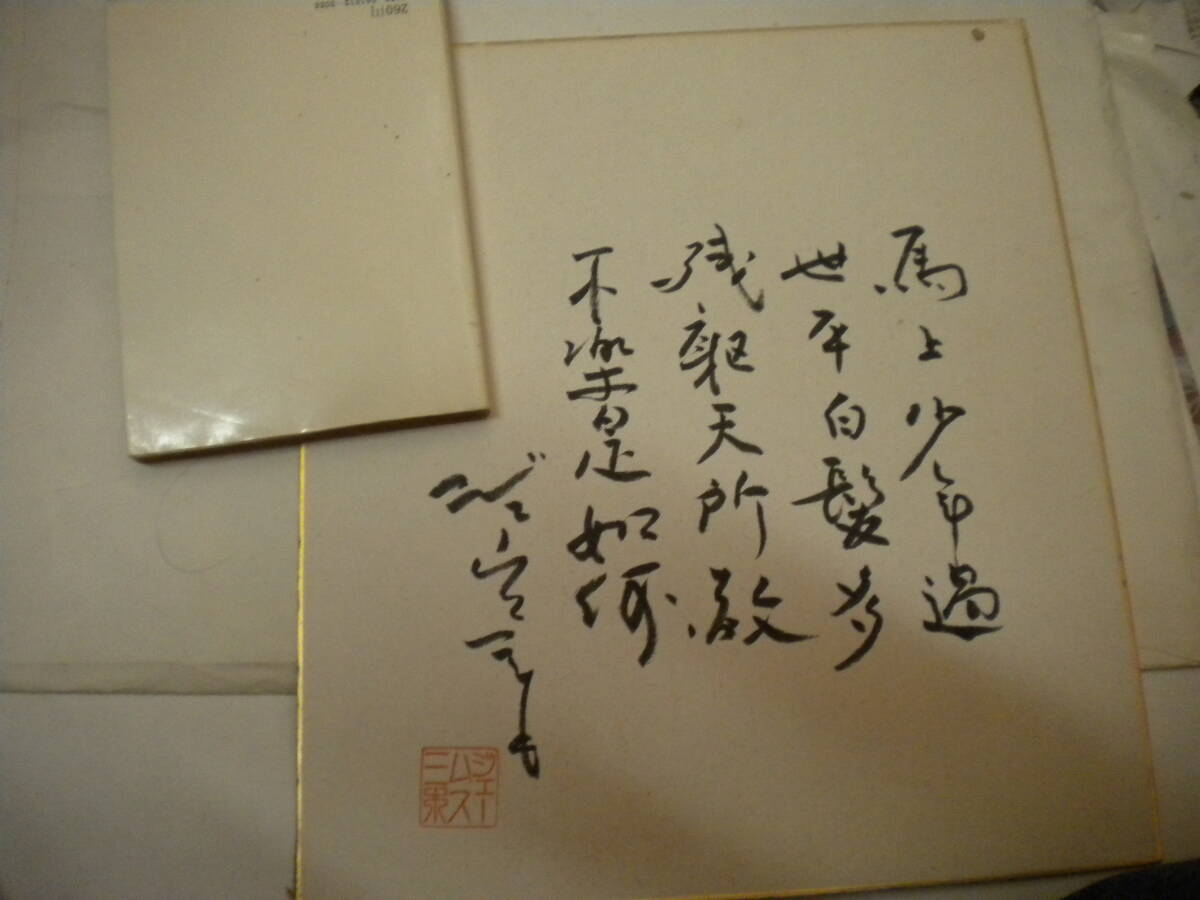 馬上少年過
世平白髪多
残躯天所赦
不楽是如何
ジェー
ムス
260円